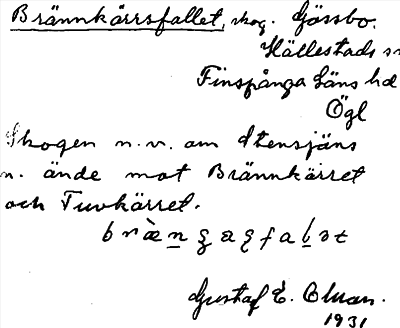 Brännkärrsfallet, skog. Gössbo.
Hällestads sn
Finspånga läns hd
Ögl
Skogen n.v. om Stensjöns
n. ände mot Brännkärret
och Tuvkärret.
Gustaf E.
1931